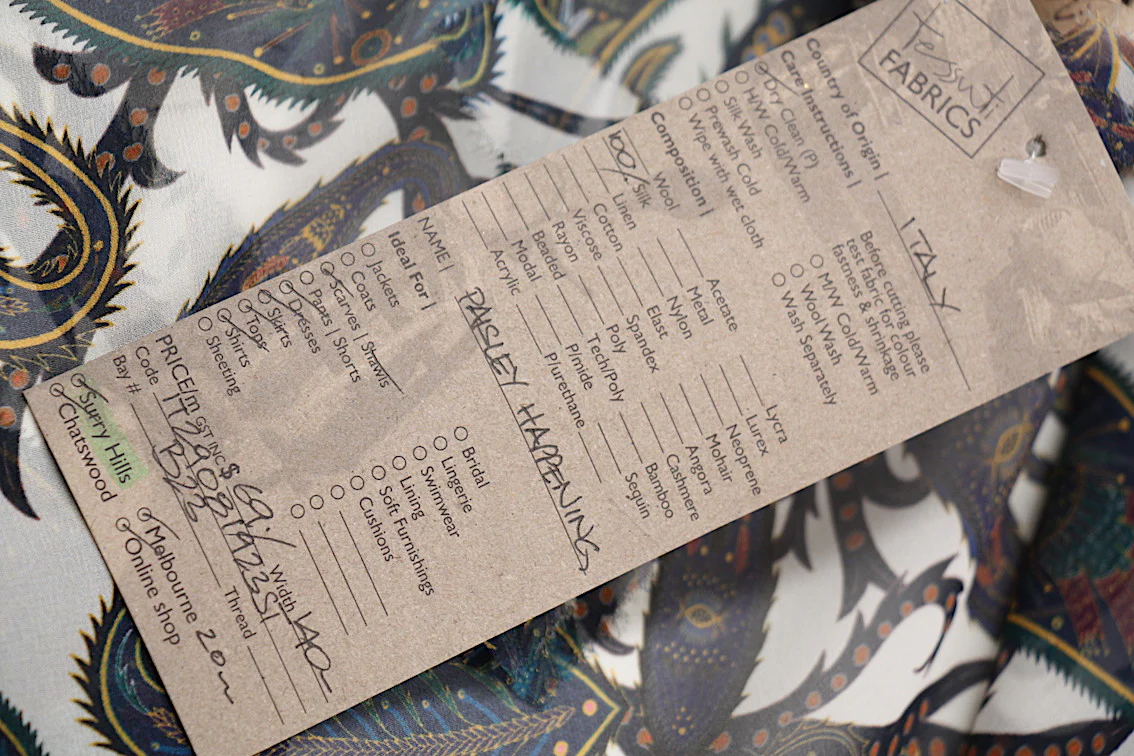 Tessuti
FABRICS
Country of Origin | ITALY
Care Instructions |
Dry Clean (P)
H/W Cold/Warm
Silk Wash
Prewash Cold
Wipe with wet cloth
Before cutting please
test fabric for colour
fastness & shrinkage
M/W Cold/Warm
Wool Wash
Wash Separately
Composition |
Wool
100% Silk
Linen
Cotton
Viscose
Rayon
Beaded
Modal
Acrylic
Acetate
Metal
Nylon
Elast
Spandex
Poly
Tech/Poly
P/mide
P/urethane
Lycra
Lurex
Neoprene
Mohair
Angora
Cashmere
Bamboo
Sequin
NAME | PAISLEY HAPPENING
Ideal For |
Jackets
Coats
Scarves | Shawls
Pants | Shorts
Dresses
Skirts
Tops
Shirts
Sheeting
Bridal
Lingerie
Swimwear
Lining
Soft Furnishings
Cushions
PRICE/m GST INC $ 69./ Width 140
Code
Bay # B23 Thread
Surry Hills
Chatswood
Melbourne 20m
Online shop